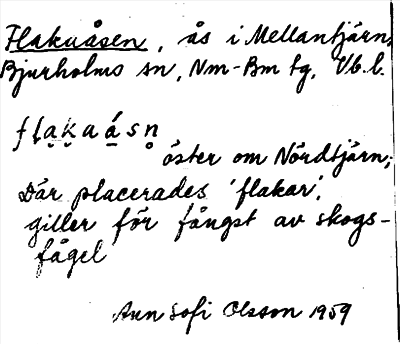 Flakaåsen, ås i Mellantjärn,
Bjurholms sn, Nm-Bm tg, Vb. l.
flakaásn̥
öster om Nördtjärn;
Där placerades 'flakar',
giller för fångst av skogs-
fågel
Ann Sofi Olsson 1959